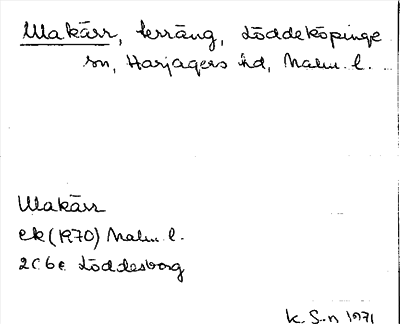 Makärr, terräng, Löddeköpinge
sn, Harjagers hd, Malm. l.
Makärr
ek (1970) Malm. l.
2C6e Löddesborg
K. S-n 1971